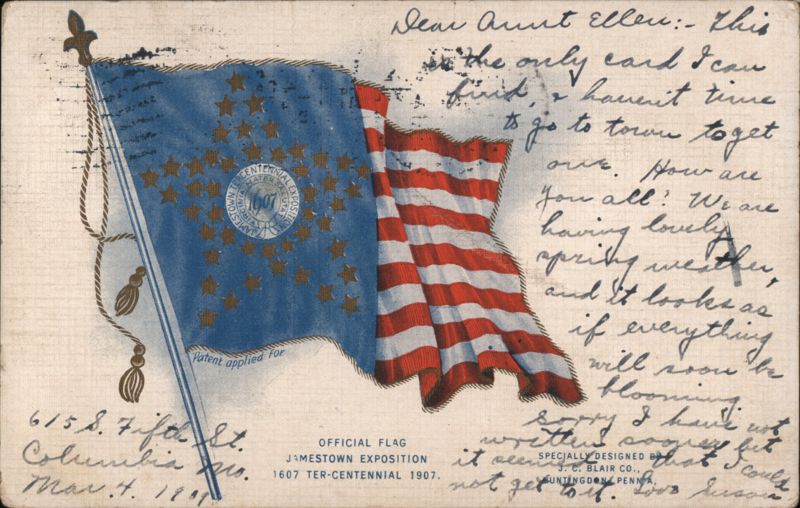 Dear Aunt Ellen:- This
is the only card I can
find, & haven't time
to go to town to get
one. How are
you all? We are
having lovely
spring weather,
and it looks as
if everything
will soon be
blooming
sorry I have not
written sooner but
it seemed that I could
not get to it. Love Susan
JAMESTOWN TER-CENTENNIAL EXPOSITION
1607
Patent applied for
615 S. Fifth St.
Columbia Mo.
Mar. 4. 1909
OFFICIAL FLAG
JAMESTOWN EXPOSITION
1607 TER-CENTENNIAL 1907.
SPECIALLY DESIGNED BY
J. C. BLAIR CO.,
HUNTINGDON, PENN'A.